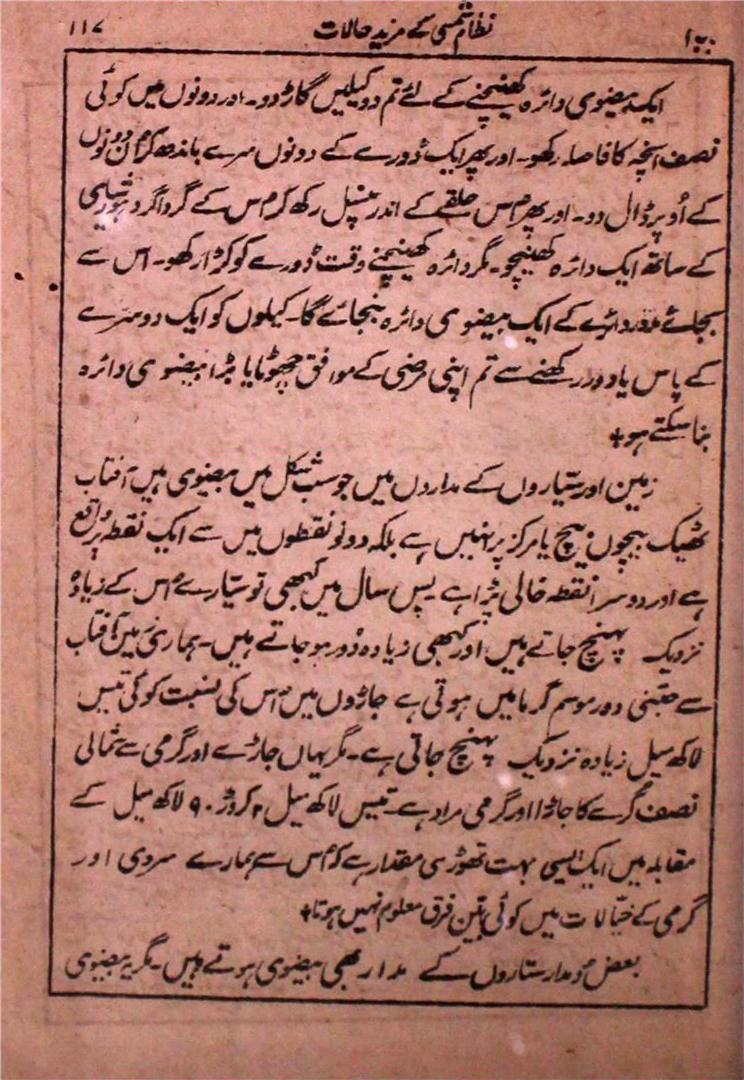 باب ۱ نظام شمسی کے مزید حالات ۱۱۷
ایک بیضوی دائرہ کھینچنے کے لئے تم دو کیلیں گاڑ دو۔ اور دونوں میں کوئی
نصف انچہ کا فاصلہ رکھو۔ اور پھر ایک ڈورے کے دونوں سرے باندھ کر اُن دونوں
کے اُوپر ڈال دو۔ اور پھر اس حلقے کے اندر پنسل رکھ کر اس کے گرداگرد ہوشیاری
کے ساتھ ایک دائرہ کھینچو۔ مگر دائرہ کھینچتے وقت ڈورے کو کڑا رکھو۔ اس سے
بجائے مدور دائرے کے ایک بیضوی دائرہ بنجائے گا۔ کیلوں کو ایک دوسرے
کے پاس یا دور رکھنے سے تم اپنی مرضی کے موافق چھوٹا یا بڑا بیضوی دائرہ
بنا سکتے ہو +
زمین اور ستیاروں کے مداروں میں جو سب شکل میں بیضوی ہیں آفتاب
ٹھیک بیچوں بیچ یا مرکز پر نہیں ہے بلکہ دونو نقطوں میں سے ایک نقطہ پر واقع
ہے اور دوسرا نقطہ خالی پڑا ہے۔ پس سال میں کبھی تو ستیارے اس کے زیادہ
نزدیک پہنچ جاتے ہیں اور کبھی زیادہ دُور ہو جاتے ہیں۔ ہماری زمین آفتاب
سے جتنی دور موسم گرما میں ہوتی ہے جاڑوں میں اس کی نسبت کوئی تیس
لاکھ میل زیادہ نزدیک پہنچ جاتی ہے۔ مگر یہاں جاڑے اور گرمی سے شمالی
نصف کرے کا جاڑا اور گرمی مراد ہے۔ تیس لاکھ میل ۲ کروڑ ۹۰ لاکھ میل کے
مقابلہ میں ایک ایسی بہت تھوڑی مقدار ہے کہ اس سے ہمارے سردی اور
گرمی کے خیالات میں کوئی بیّن فرق معلوم نہیں ہوتا +
بعض دمدار ستاروں کے مدار بھی بیضوی ہوتے ہیں۔ مگر یہ بیضوی